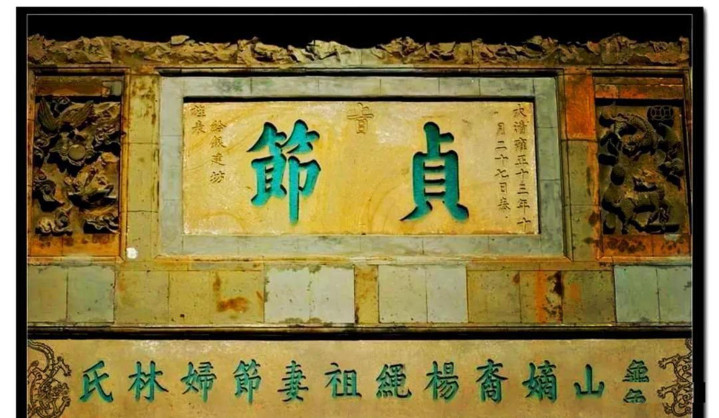 大清雍正十三年十
月二十七日奉
旨
貞節
給銀建坊
旌表
山嫡裔楊繩祖妻節婦林氏